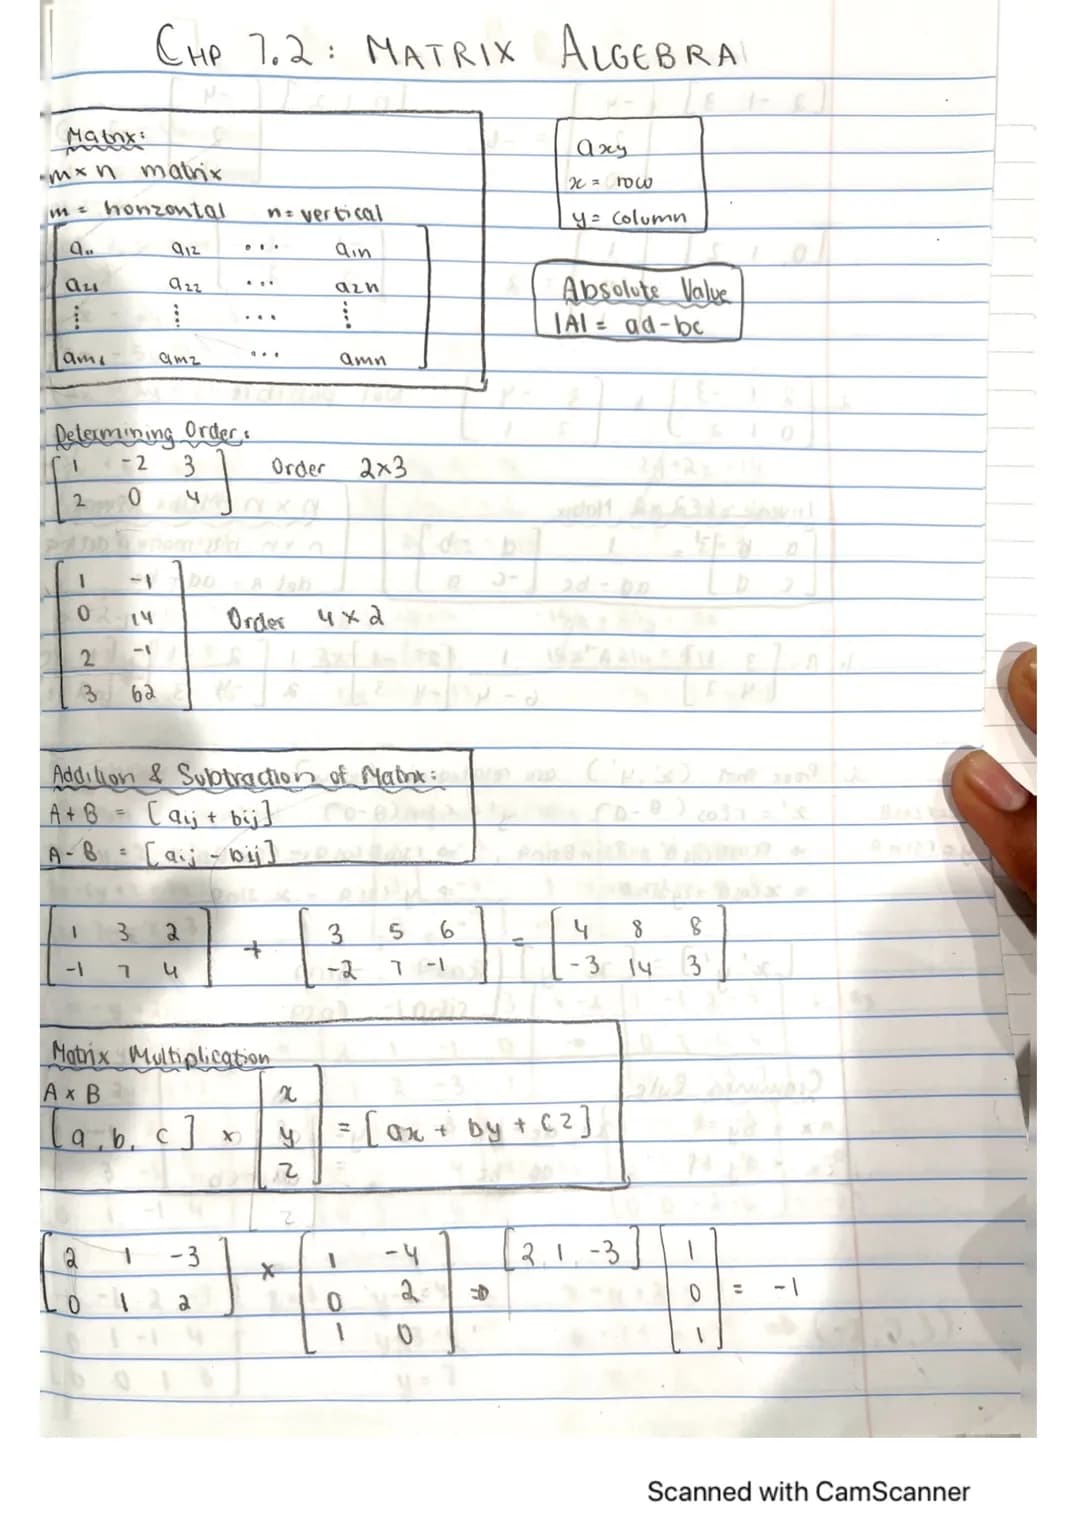 CHP 7.2: MATRIX ALGEBRA
Matrix:
m×n matrix
m = horizontal n = vertical
a11 a12 ... a1n
a21 a22 ... a2n
⋮ ⋮ ... ⋮
am1 am2 ... amn
axy
x = row
y = column
Absolute Value
|A| = ad-bc
Determining Order:
[1 -2 3] Order 2×3
[2 0 4]
[1 -1]
[0 14] Order 4×2
[2 -1]
[3 62]
Addition & Subtraction of Matrix:
A+B = [aij + bij]
A-B = [aij - bij]
[1 3 2] + [3 5 6] = [4 8 8]
[-1 7 4] [-2 7 -1] [-3 14 3]
Matrix Multiplication
A × B
[a, b, c] × [x y z] = [ax + by + cz]
[2 1 -3] × [1 -4] ⇒ [2, 1, -3] [1
[0 1 2] [0 2] 0 = -1
[1 0] 1]
Scanned with CamScanner